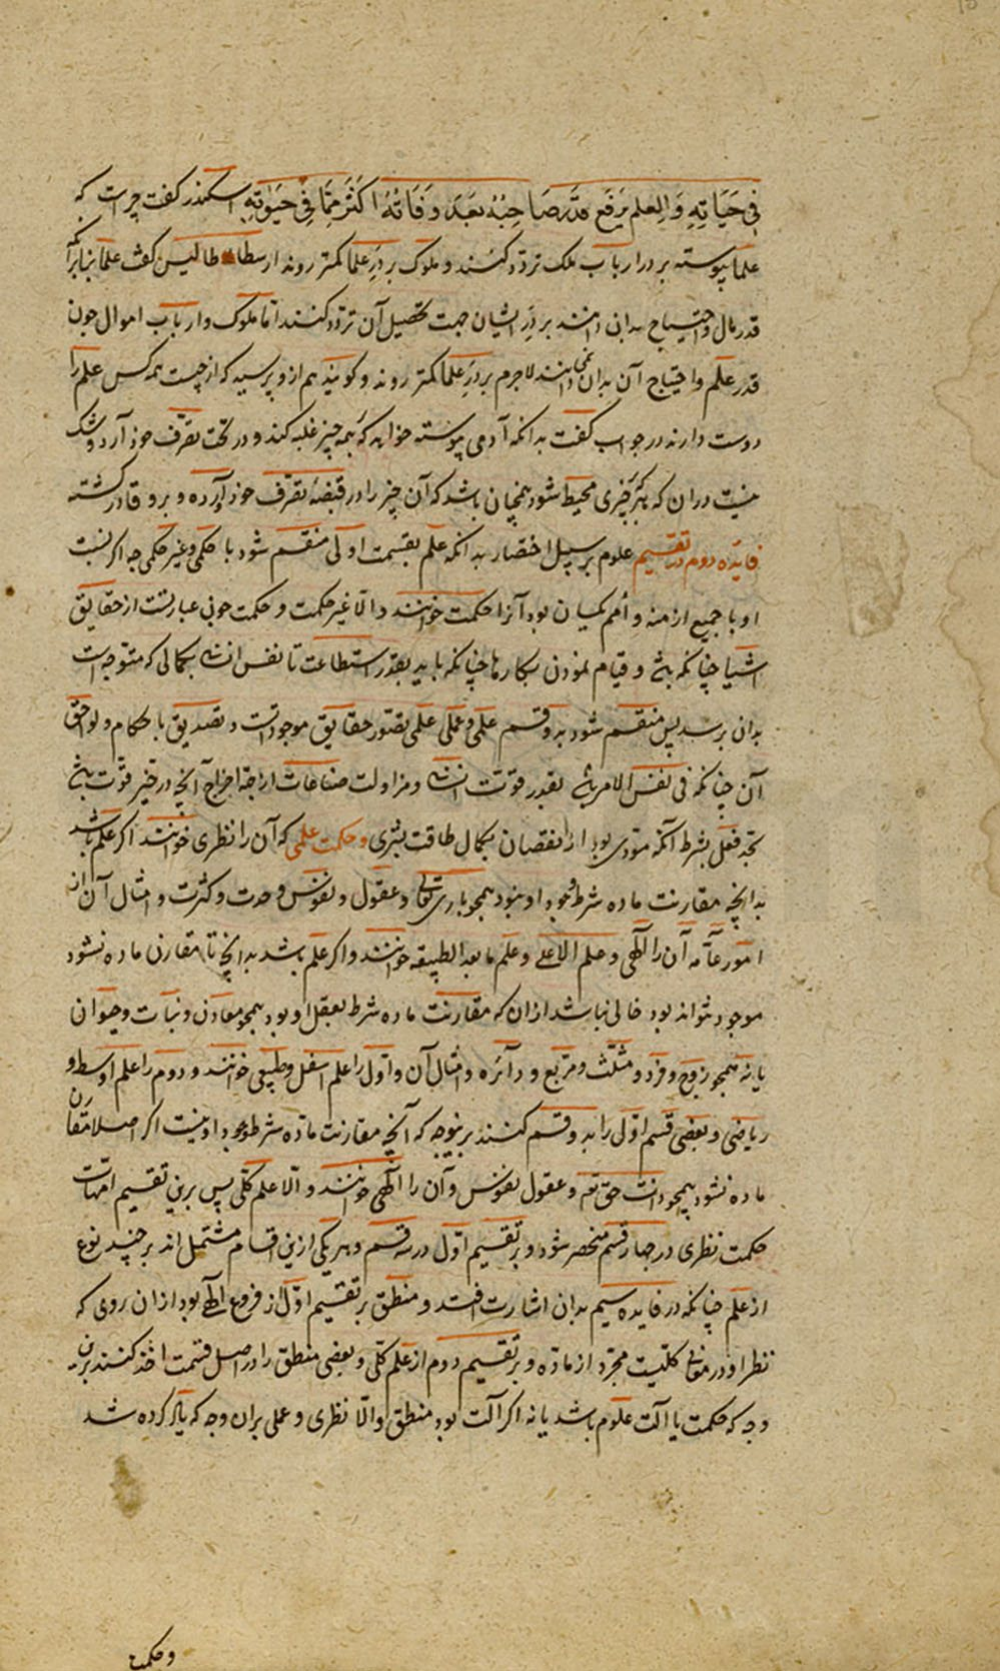 فِی حَیَاتِهِ وَالعِلم یَرفَع قَدَر صَاحِبُهُ بَعدَ وَفَاتُهُ اَکثَر مِمَّا فِی حَیٰوتِهِ اسکندر کفت چراست که
علما پیوسته بر در ارباب ملک تردّد کنند و ملوک بر درِ علما کمتر روند ارسطاطالیس کفت علما بنابرآنکه
قدر مال و احتیاج بدان دانند بر درِ ایشان جهت تحصیل آن تردّد کنند اما ملوک و ارباب اموال چون
قدر علم و احتیاج آن بدان نمی‌دانند لاجرم بر درِ علما کمتر روند و کویند هم ازو پرسید که از چیست همه کس علم را
دوست دارند در جواب کفت بدانکه آدمی پیوسته خواهد که بر همه چیز غلبه کند و در تحت تصرّف خوذ آرد و شک
نیست در آن که بهر چیزی محیط شود همچنان باشد که آن چیز را در قبضهٔ تصرّف خوذ آورده و برو قادر کشته
فایده دوم در تقسیم علوم بر سبیل اختصار بدانکه علم بقسمت اولی منقسم شود با حکمی و غیر حکمی چه اکر نسبت
او با جمیع ازمنه و اُمم یکسان بود آنرا حکمت خوانند والّا غیر حکمت و حکمت چون عبارتست از حقایق
اشیا چنانکه باشد و قیام نمودن بکارها چنانکه باید بقدر استطاعت تا نفس انسانی بکمالی که متوجه است
بدان برسد پس منقسم شود بدو قسم علمی و عملی علمی تصوّر حقایق موجوداتست و تصدیق باحکام و لواحق
آن چنانکه فی نفس الامر باشد بقدر قوّت انسانی و مزاولت صناعات از جهة اخراج آنچه در حیّز قوّت باشد
بحدّ فعل بشرط آنکه مؤدّی بود از نقصان بکمال طاقت بشری و حکمت علمی که آن را نظری خوانند اکر علم باشد
بدانچه مقارنت ماده شرط وجود او نبود همجو باری تعالی و عقول و نفوس و وحدت و کثرت و امثال آن از
امور عامّه آن را الٓهی و علم الاعلی و علم ما بعد الطبیعه خوانند و اکر علم باشد بدانچه تا مقارن ماده نشود
موجود نتواند بود خالی نباشد از ان که مقارنت ماده شرط تعقل او بود همجو معادن و نبات و حیوان
یا نه همجو زوج و فرد و مثلّث و مربّع و دائره و امثال آن و اوّل را علم اسفل و طبیعی خوانند و دوم را علم اوسط و
ریاضی و بعضی قسم اوّل را بدو قسم کنند برین وجه که آنچه مقارنت مادّه شرط وجود او نیست اکر اصلا مقارن
ماده نشود همجو ذات حق تع و عقول نفوس و آن را الٓهی خوانند و الّا علم کلّی پس برین تقسیم امّهات
حکمت نظری در چهار قسم منحصر شود و بر تقسیم اوّل در سه قسم و هر یکی ازین اقسام مشتمل اند بر چند نوع
از علم چنانکه در فایده سیم بدان اشارت افتد و منطق بر تقسیم اوّل از فروع الٓهی بود از ان روی که
نظر او در معانی کلّیت مجرّد از مادّه و بر تقسیم دوم از علم کلّی و بعضی منطق را در اصل قسمت اخذ کنند برین
وجه که حکمت یا آلت علوم باشد یا نه اکر آلت بود منطق والّا نظری و عملی بران وجه که یاد کرده شد
و حکمت